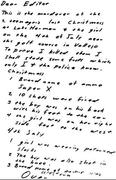 Dear Editor
This is the murderer of the
2 teenagers last Christmass
at Lake Herman & the girl
on the 4th of July near
the golf course in Vallejo
To prove I killed them I
shall state some facts which
only I & the police know.
Christmass
1 Brand name of ammo
Super X
2 10 shots were fired
3 the boy was on his back
with his feet to the car
4 the girl was on her right
side feet to the west
4th July
1 girl was wearing paterned
slacks
2 The boy was also shot in
the knee.
3 Brand name of ammo was
Over